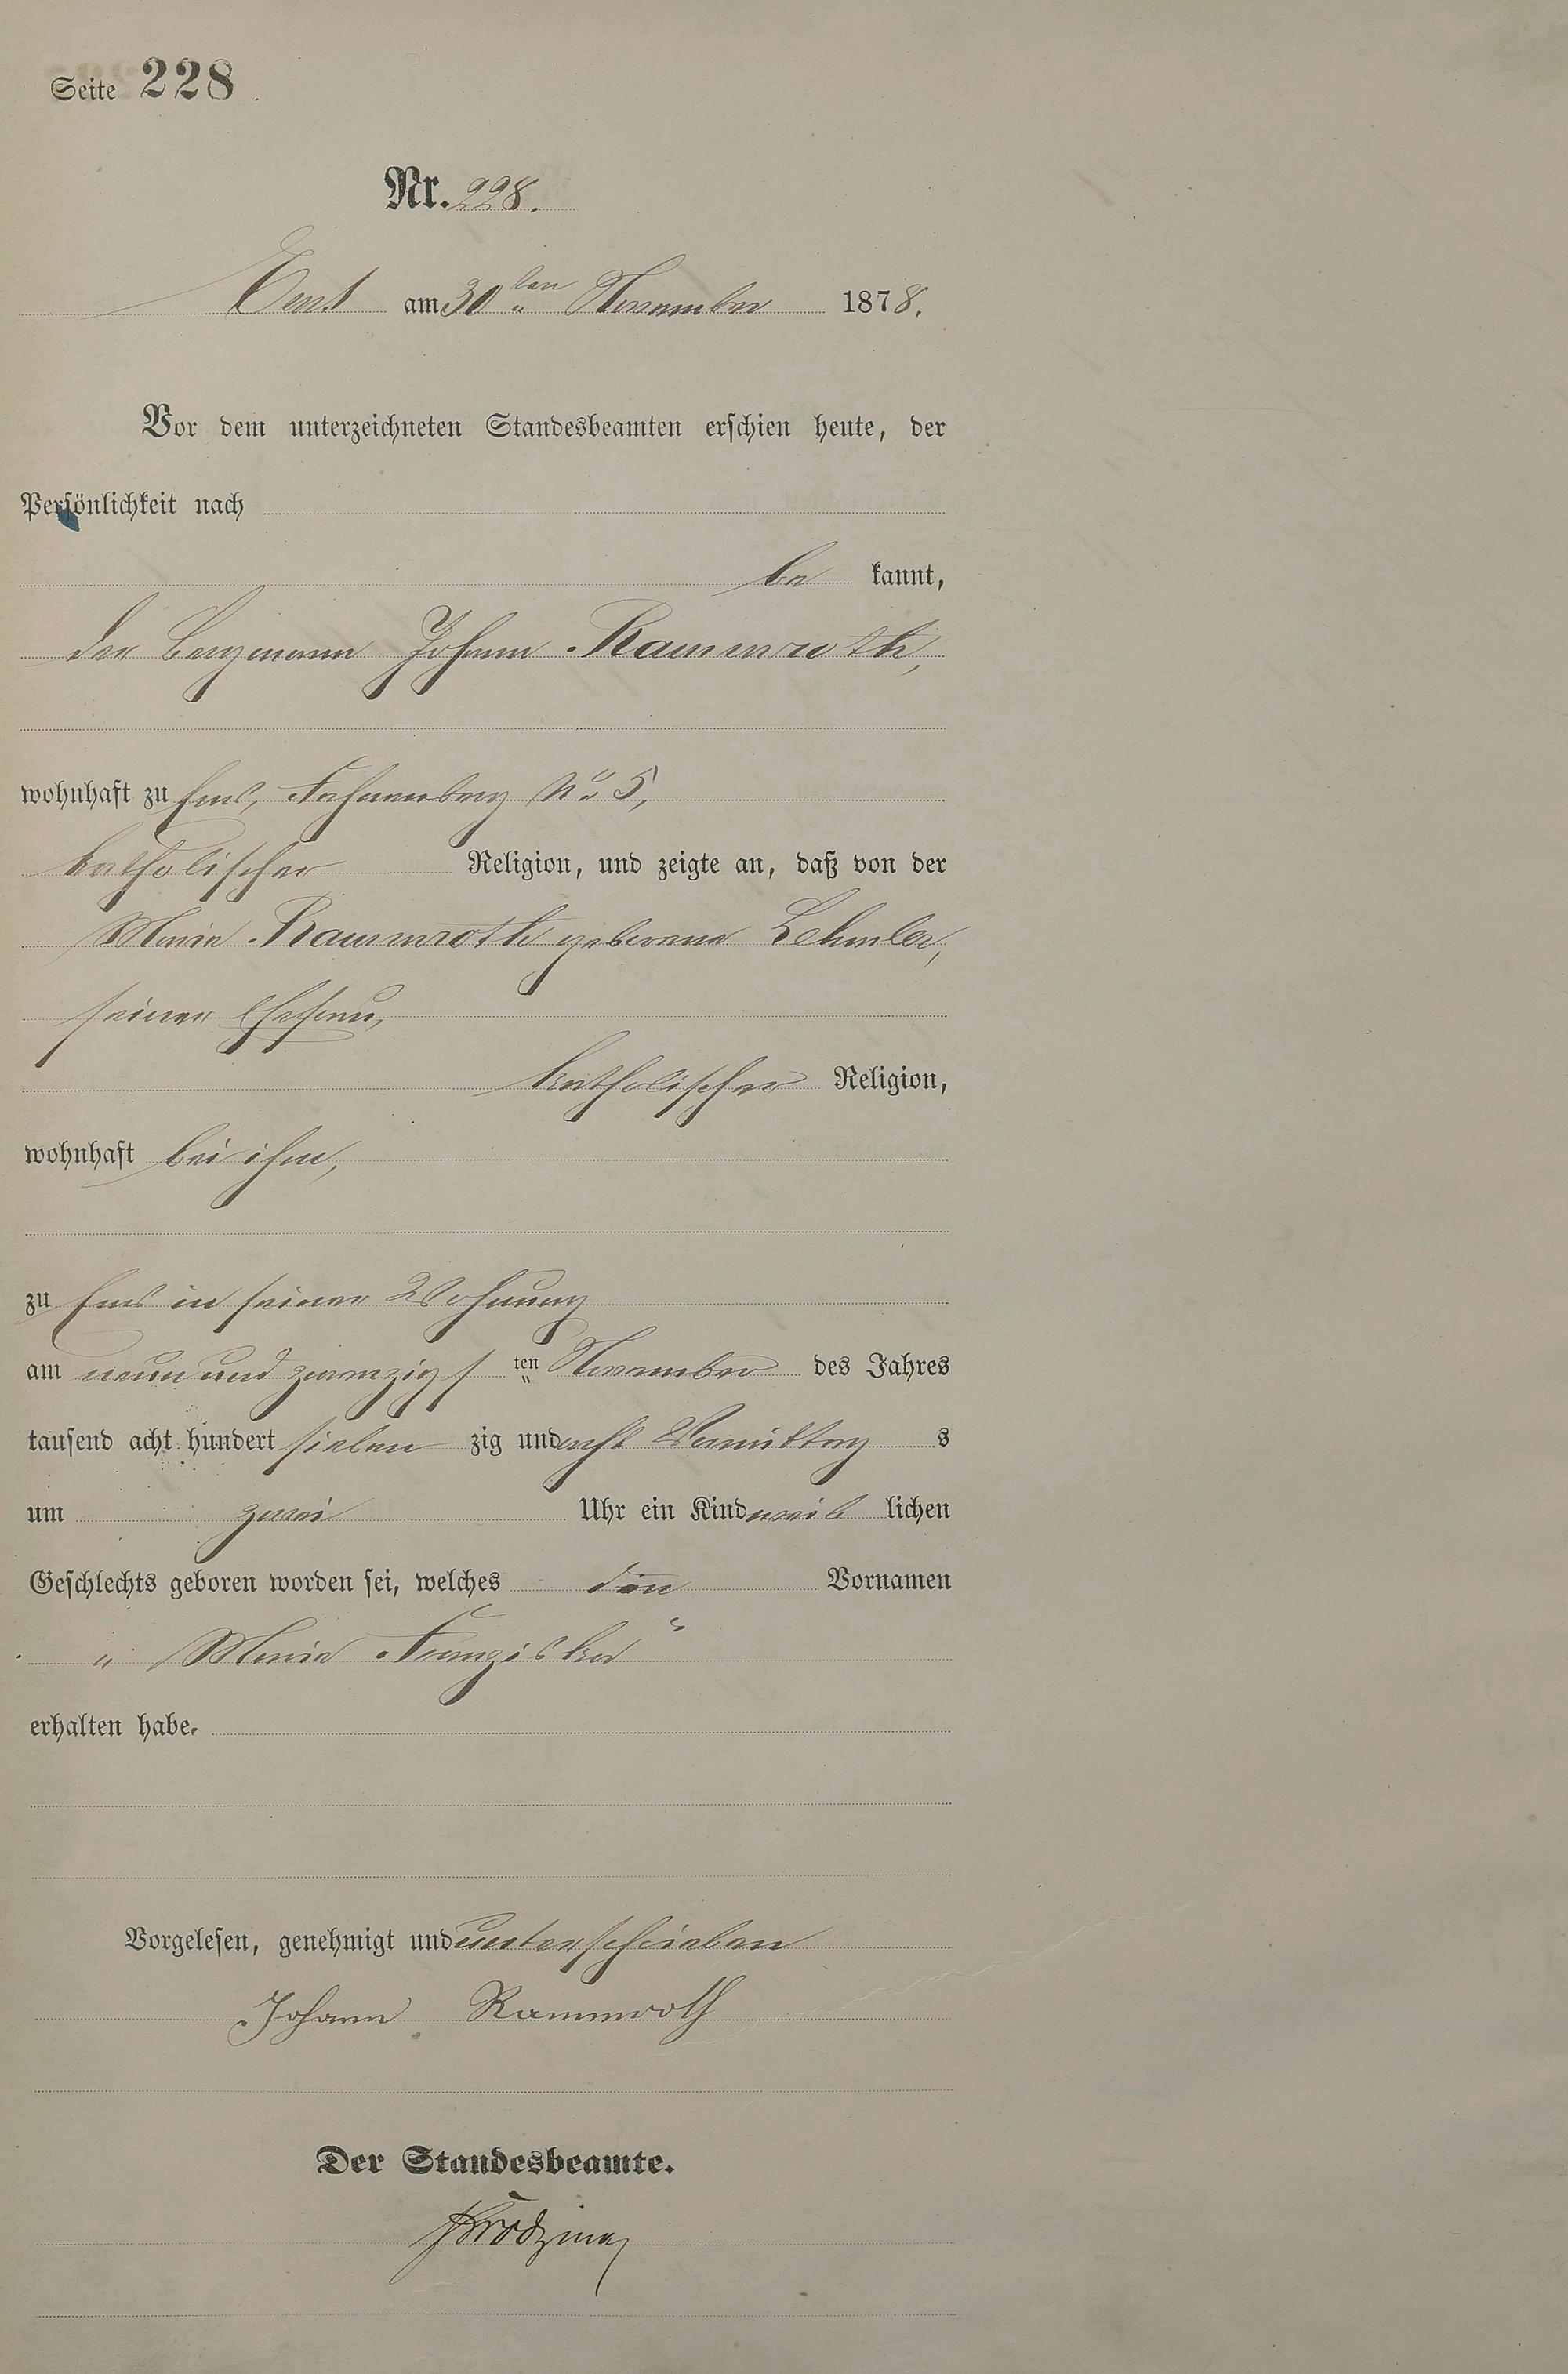 Seite 228
Nr. 228.
Ems am 30ten November 1878.
Vor dem unterzeichneten Standesbeamten erschien heute, der
Persönlichkeit nach
be kannt,
der Bergmann Johann Rammroth,
wohnhaft zu Ems, No 5,
katholischer Religion, und zeigte an, daß von der
Maria Rammroth geborene Lehmler,
seiner Ehefrau,
katholischer Religion,
wohnhaft bei ihm,
zu Ems in seiner Wohnung
am neun und zwanzigsten November des Jahres
tausend acht hundert sieben zig und acht Vormittag s
um zwei Uhr ein Kind weib lichen
Geschlechts geboren worden sei, welches den Vornamen
„Maria Franziska“
erhalten habe.
Vorgelesen, genehmigt und unterschrieben
Johann Rammroth
Der Standesbeamte.